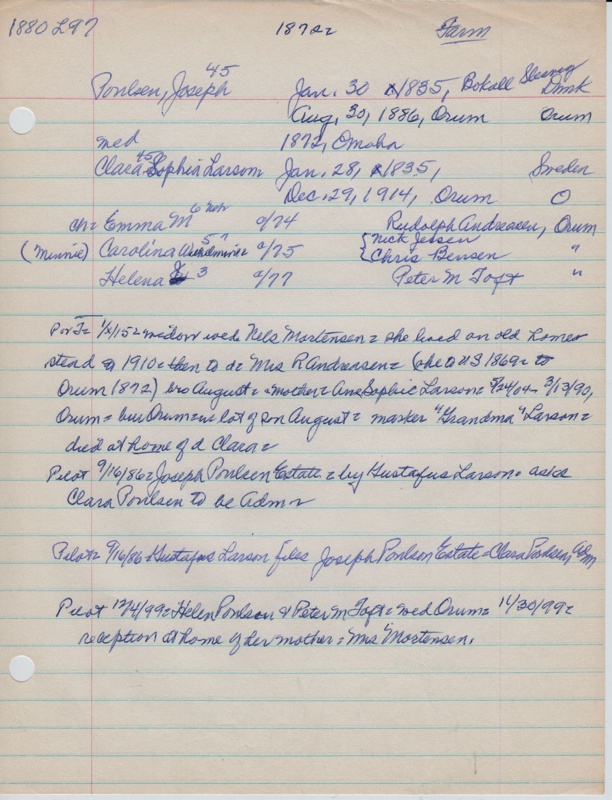 1880 L97 1872= Farm
45
Poulsen, Joseph Jan. 30 1835, Bokoll Denmk
Aug, 30, 1886, Orum Orum
wed 1872, Omaha
Clara 45 Sophia Larson Jan. 28, 1835, Sweden
Dec. 29, 1914, Orum O
ch= Emma M 6 Nebr a/74 Rudolph Andreasen, Orum
(Minnie) Carolina 5 a/75 { Nick Jessen
Chris Bensen "
Helena 3 a/77 Peter M Toft "
1/4/15= widow wed Nels Mortensen= she lived on old home
stead 1910= then to d= Mrs R Andreasen= (she to US 1869= to
Orum 1872) bro August= mother= Ana Sophie Larson= 5/24/04- 3/13/90,
Orum= bur Orum= lot of son August= marker "Grandma" Larson=
died at home of d Clara=
Pilot 9/16/86= Joseph Poulsen Estate= by Gustafus Larson= asks
Clara Poulsen to be Adm=
Pilot= 9/16/86 Gustafus Larson files Joseph Poulson Estate= Clara Poulsen, Adm
Pilot 12/4/99= Helen Poulsen & Peter M Toft= wed Orum= 11/30/99=
reception at home of her mother= Mrs Mortensen.